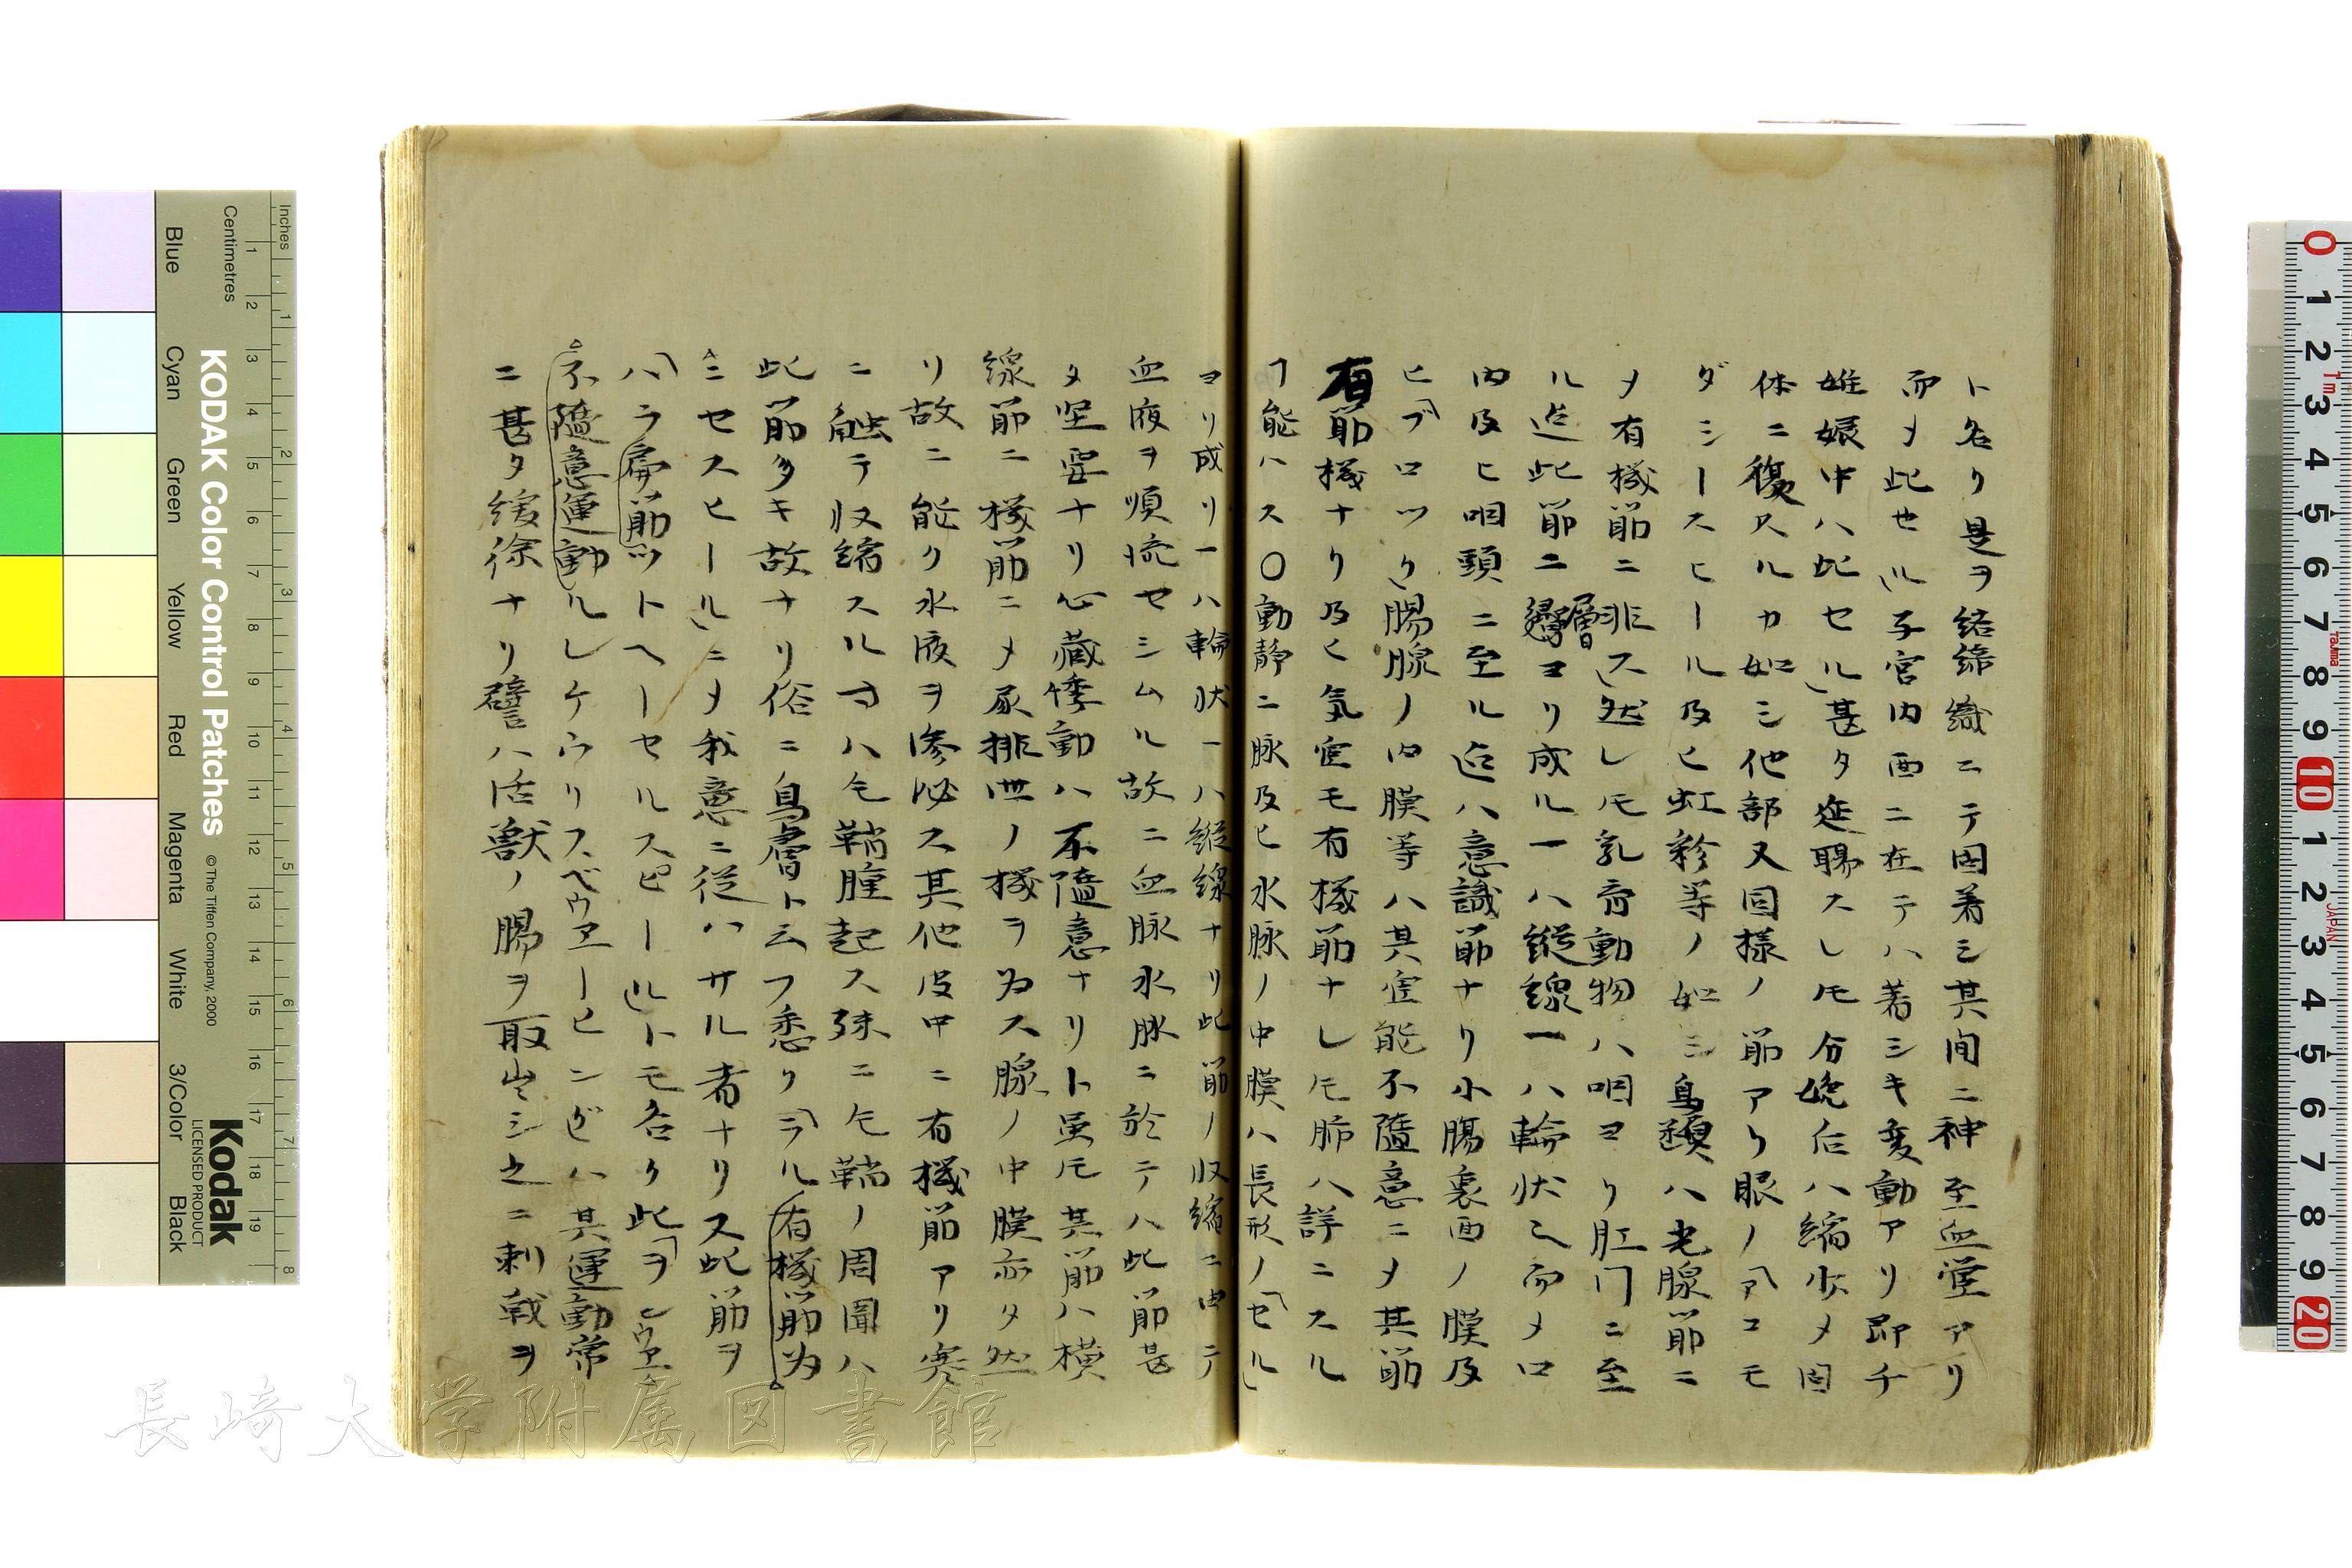 ト名ク是ヲ結締織ニテ固着シ其間ニ神至血堂アリ
而メ此セル子宮内面ニ在テハ著シキ変動アリ即チ
妊娠中ハ此セル甚タ延腸スレ𪜈分娩后ハ縮少メ固
体ニ複スルカ如シ他部又同様ノ筋アリ眼ノアコモ
ダシースヒール及ヒ虹彩等ノ如シ鳥類ハ毛腺筋ニ
メ有機筋ニ非ス然レ𪜈乳斎動物ハ咽ヨリ肛門ニ至
ル迠此筋ニ層ヨリ成ル一ハ縦線一ハ輪状之而メ口
内及ヒ咽頭ニ至ル迠ハ意識筋ナリ小腸裏面ノ膜及
ヒブロック腸腺ノ内膜等ハ其官能不隨意ニメ其筋
有筋機ナリ及ヒ気官モ有機筋ナレ𪜈肺ハ詳ニスル
ヿ能ハス〇動静ニ脉及ヒ水脉ノ中膜ハ長形ノセル
ヨリ成リ一ハ輪状一ハ縦線ナリ此筋ノ収縮ニ由テ
血液ヲ順流セシムル故ニ血脉水脉ニ於テハ此筋甚
タ堅要ナリ心藏悸動ハ不隨意ナリト虽𪜈其筋ハ横
線筋ニ機筋ニメ尿排泄ノ機ヲ为ス腺ノ中膜亦タ然
リ故ニ能ク水液ヲ滲泌ス其他皮中ニ有機筋アリ寒
ニ触テ収縮スル寸ハ毛鞘腫起ス殊ニ毛鞘ノ周圍ハ
此筋多キ故ナリ俗ニ鳥膚ト云フ悉クヲル有機筋为
ミセスヒールニメ我意ニ従ハサル者ナリス此筋ヲ
ハラ扁筋ットヘーセルスピールトモ名ク此ヲレウエ
不隨意運動ルレケウリスベウエーヒンゲハ其運動常
ニ甚タ緩徐ナリ譬ハ活獣ノ腸ヲ取出シ之ニ刺戟ヲ
Inches
Centimetres
KODAK Color Control Patches
© The Tiffen Company, 2000
Kodak
LICENSED PRODUCT
Blue Cyan Green Yellow Red Magenta White 3/Color Black
JAPAN
長崎大学附属図書館